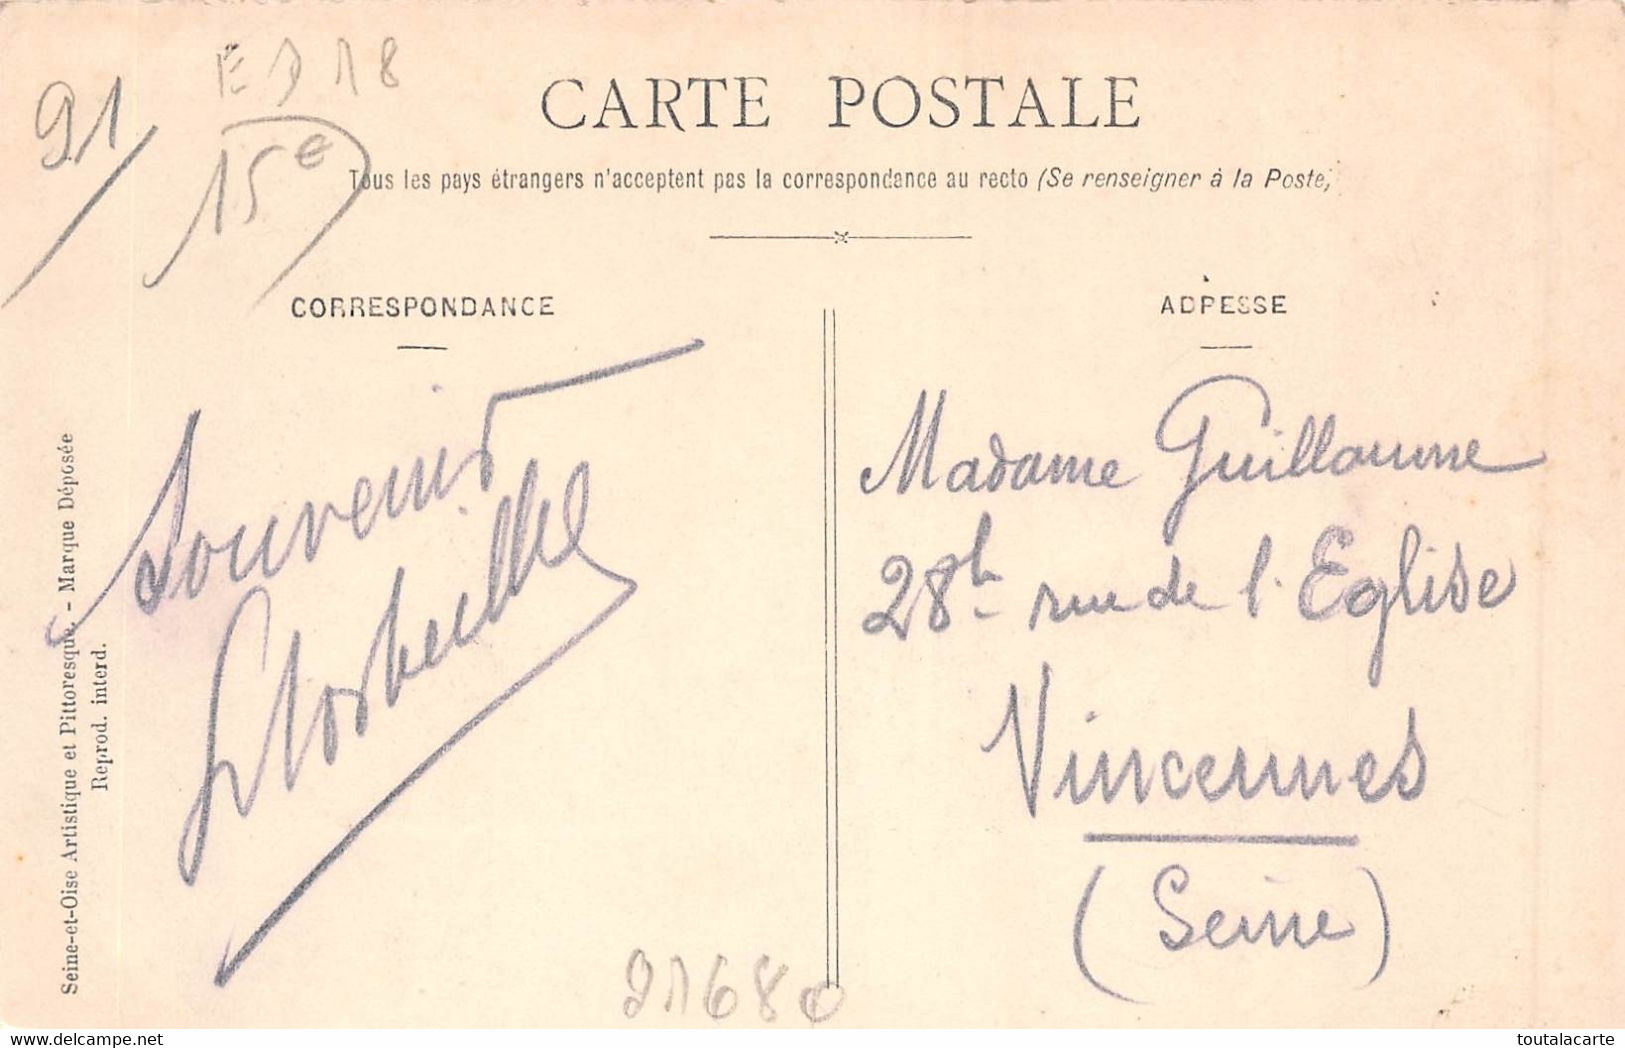 91
ED 18
15€
CARTE POSTALE
Tous les pays étrangers n'acceptent pas la correspondance au recto (Se renseigner à la Poste)
CORRESPONDANCE
ADRESSE
Souvenirs
Madame Guillaume
28b rue de l'Eglise
Vincennes
(Seine)
91680
Seine-et-Oise Artistique et Pittoresque. - Marque Déposée
Reprod. interd.
delcampe.net
toutalacarte